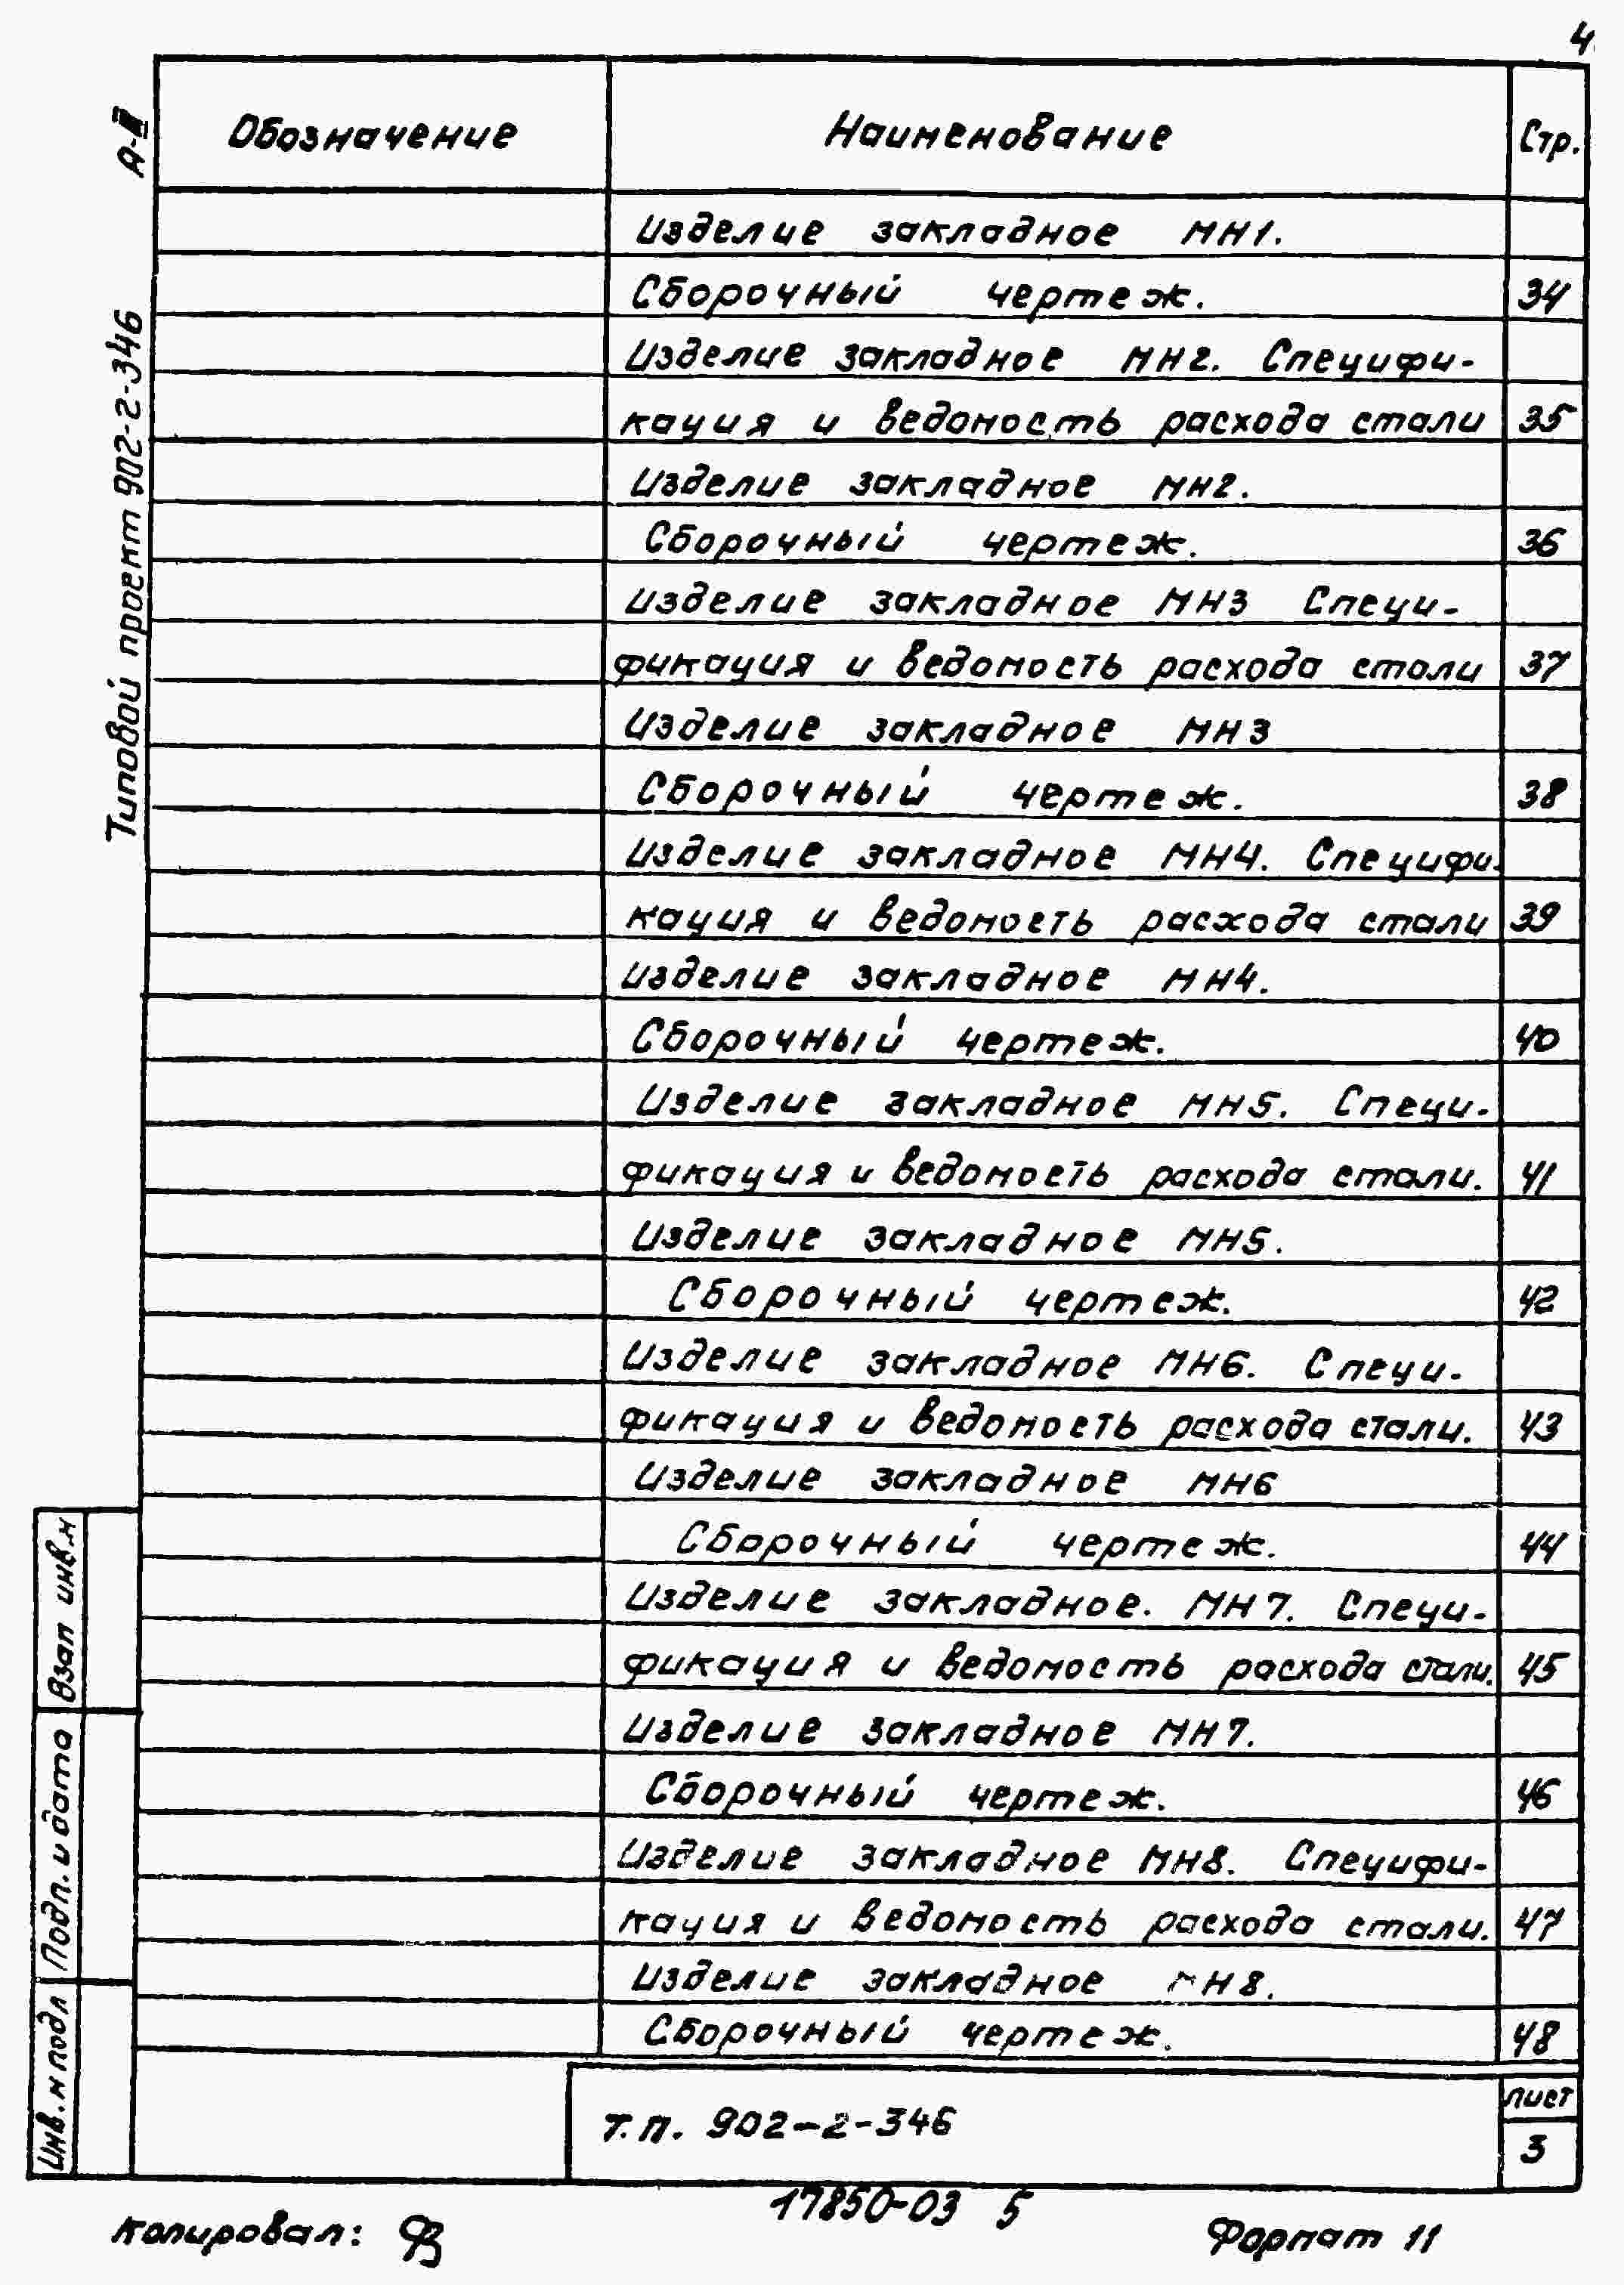 4
А-III
Типовой проект 902-2-346
Обозначение Наименование Стр.
Изделие закладное МН1.
Сборочный чертеж. 34
Изделие закладное МН2. Специфи-
кация и ведомость расхода стали 35
Изделие закладное МН2.
Сборочный чертеж. 36
Изделие закладное МН3 Специ-
фикация и ведомость расхода стали 37
Изделие закладное МН3
Сборочный чертеж. 38
Изделие закладное МН4. Специфи-
кация и ведомость расхода стали 39
Изделие закладное МН4.
Сборочный чертеж. 40
Изделие закладное МН5. Специ-
фикация и ведомость расхода стали. 41
Изделие закладное МН5.
Сборочный чертеж. 42
Изделие закладное МН6. Специ-
фикация и ведомость расхода стали. 43
Изделие закладное МН6
Сборочный чертеж. 44
Изделие закладное. МН7. Специ-
фикация и ведомость расхода стали. 45
Изделие закладное МН7.
Сборочный чертеж. 46
Изделие закладное МН8. Специфи-
кация и ведомость расхода стали. 47
Изделие закладное МН8.
Сборочный чертеж. 48
Взап инв.н
Подп. и дата
Инв. н подл
Т.П. 902-2-346
лист
3
17850-03 5
Копировал:
Формат 11